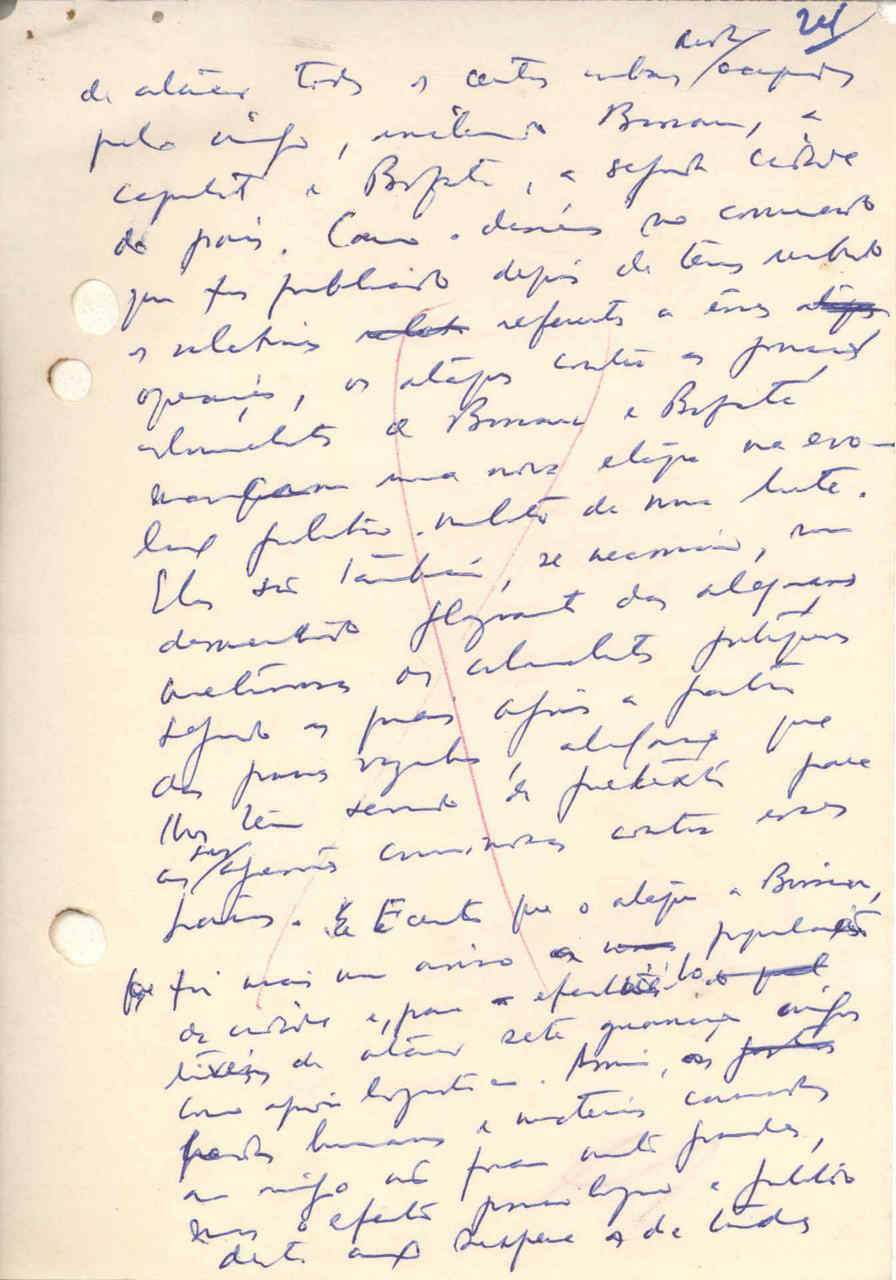 24
de atacar todos os centros urbanos ainda ocupados
pelo inimigo, incluindo Bissau, a
capital e Bafatá, a segunda cidade
do país. Como dissémos no comunicado
que foi publicado depois de termos recebido
os relatórios referentes a essas
operações, os ataques contra as guarnições
colonialistas de Bissau e Bafatá
marcam uma nova etapa na evo-
lução político-militar da nossa luta.
Eles são também, se necessário, um
desmentido flagrante das alegações
mentirosas dos colonialistas portugueses
segundo as quais após a partir
dos países vizinhos, alegações que
lhes têm servido de pretexto para
as suas agressões criminosas contra esses
países. É certo que o ataque a Bissau,
que foi mais um aviso à população
da cidade e, para o efectuar
de atacar sete guarnições inimigas
como apoio logístico. Assim, as
perdas humanas e materiais causadas
ao inimigo não foram muito grandes,
mas o efeito psicológico e político
desta acção